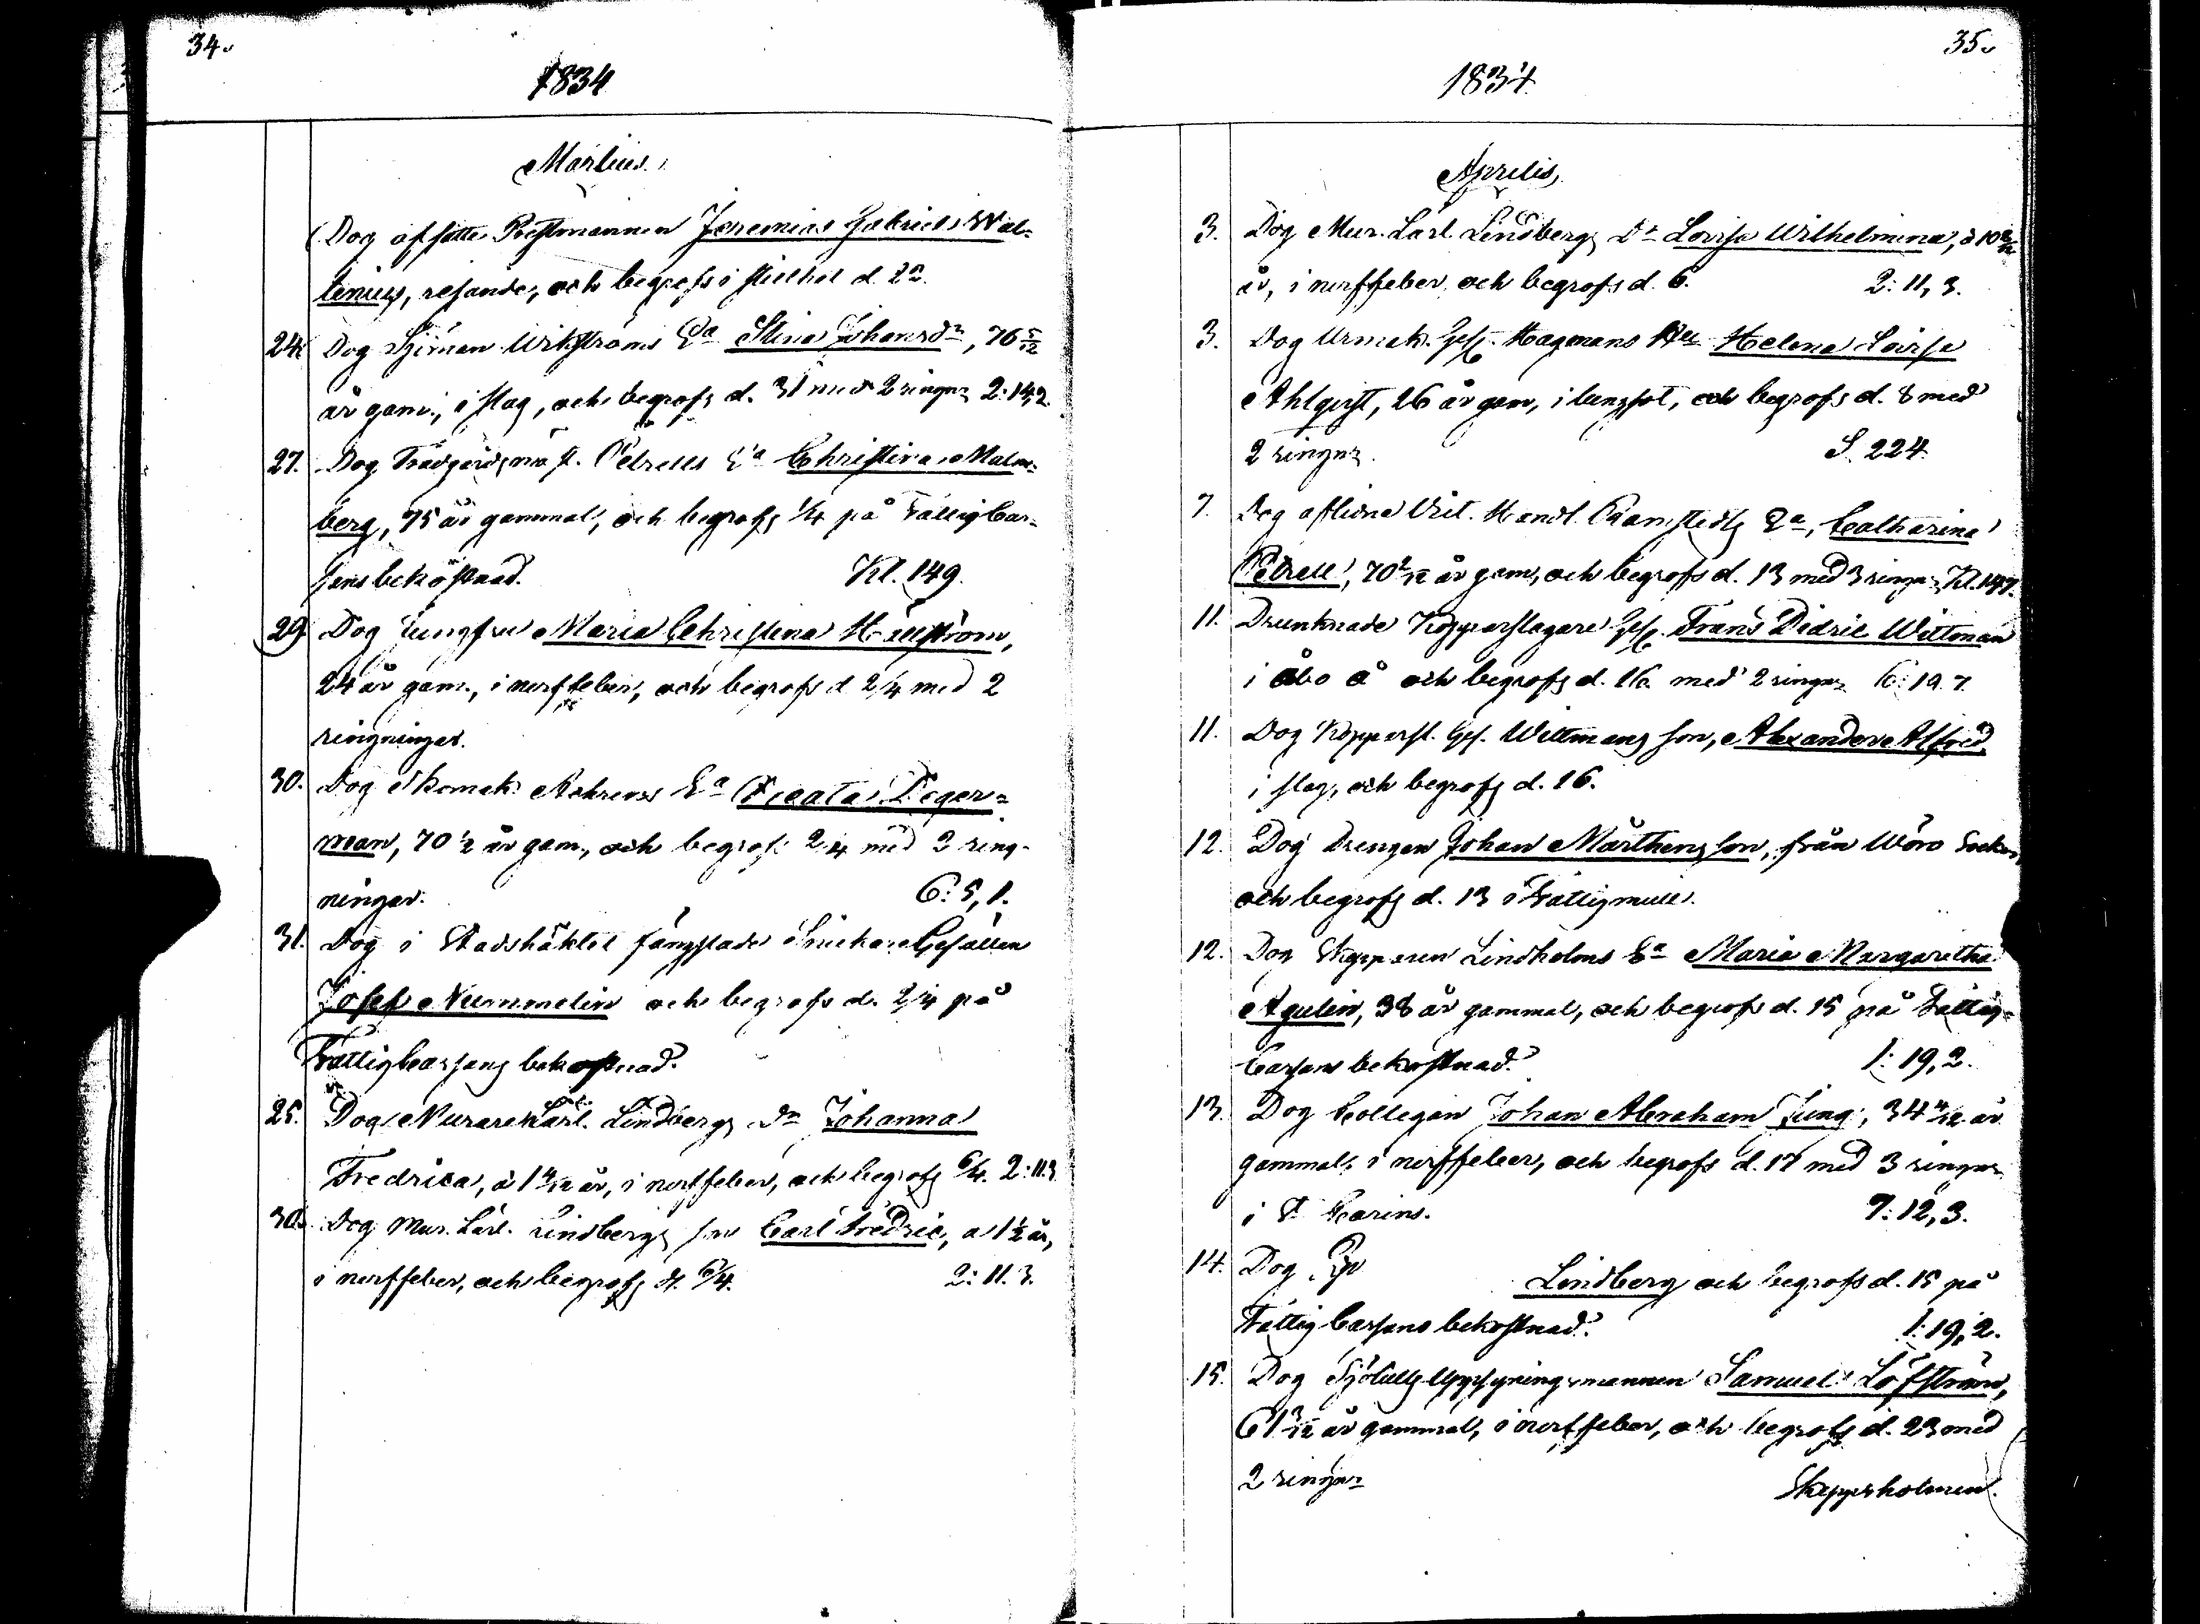 34.
1834
Martius.
Dog afsatte Prestmannen Jeremias Gabriel Wal-
lenius, resande, och begrofs i stillhet d. 2n.
24. Dog Sjöman Wikströms Ea Stina Johansdr, 76 5/12
år gam., i slag, och begrofs d. 31 med 2 ringnr 2:14,2.
27. Dog Trädgårdsmäst. Petrells Ea Christina Malm-
berg, 75 år gammal, och begrofs 1/4 på Fattig Cas-
sens bekostnad. Kl. 149.
29. Dog Jungfru Maria Christina Hällström,
24 år gam., i nerffeber, och begrofs d 2/4 med 2
ringningar.
30. Dog Skomak. Ea Beata Deger-
man, 70 1/2 år gam., och begrofs 2/4 med 2 ring-
ningar. 6:5,1.
31. Dog i Stadshäktet fängslade Snickare Gesällen
Josef Nummelin och begrofs d. 2/4 på
Fattig Cassans bekostnad.
25. Dog Murarekarl. Lindbergs Dr Johanna
Fredrica, à 1 4/12 år, i nerffeber, och begrofs 6/4. 2:11.3
30. Dog Mur. Karl. Lindbergs son Carl Fredric, a 1 1/2 år,
i nerffeber, och begrofs d. 6/4. 2:11.3.
35.
1834.
Aprilis,
3. Dog Mur. Karl. Lindbergs Dr Lovisa Wilhelmina, à 10 8/12
år, i nerffeber, och begrofs d. 6. 2:11,3.
3. Dog Urmak. Ges. Hagmans Helena Lovisa
Ahlqvist, 26 år gam, i lungsot, och begrofs d. 8 med
2 ringnr. S. 224.
7. Dog aflidne Vict. Handl. Ea, Catharina
Petrell, 70 2/12 år gam, och begrofs d. 13 med 3 ringnr, Kl. 147.
11. Drunknade Kopparslagare Ges. Frans Didric Wittman
i Åbo å och begrofs d. 16 med 2 ringnr 6:19.7.
11. Dog Kopparsl. Ges. Wittmans son, Alexander Alfred
i slag, och begrofs d. 16.
12. Dog Drengen Johan Mårthensson, från Wörö Socken,
och begrofs d. 13 i Fattigmull.
12. Dog Skepparen Lindholms Ea Maria Margaretha
Agulin, 38 år gammal, och begrofs d. 15 på Fattig-
Cassans bekostnad. 1:19,2.
13. Dog Collegan Johan Abraham Jung, 34 4/12 år
gammal, i nerffeber, och begrofs d. 17 med 3 ringnr
i St. Karins. 7:12,3.
14. Dog Lindberg och begrofs d. 15 på
Fattig Cassans bekostnad. 1:19,2.
15. Dog Sjötulls Uppsyningsmannen Samuel Löfström,
61 3/12 år gammal, i nerffeber, och begrofs d. 23 med
2 ringnr Skeppsholmen.